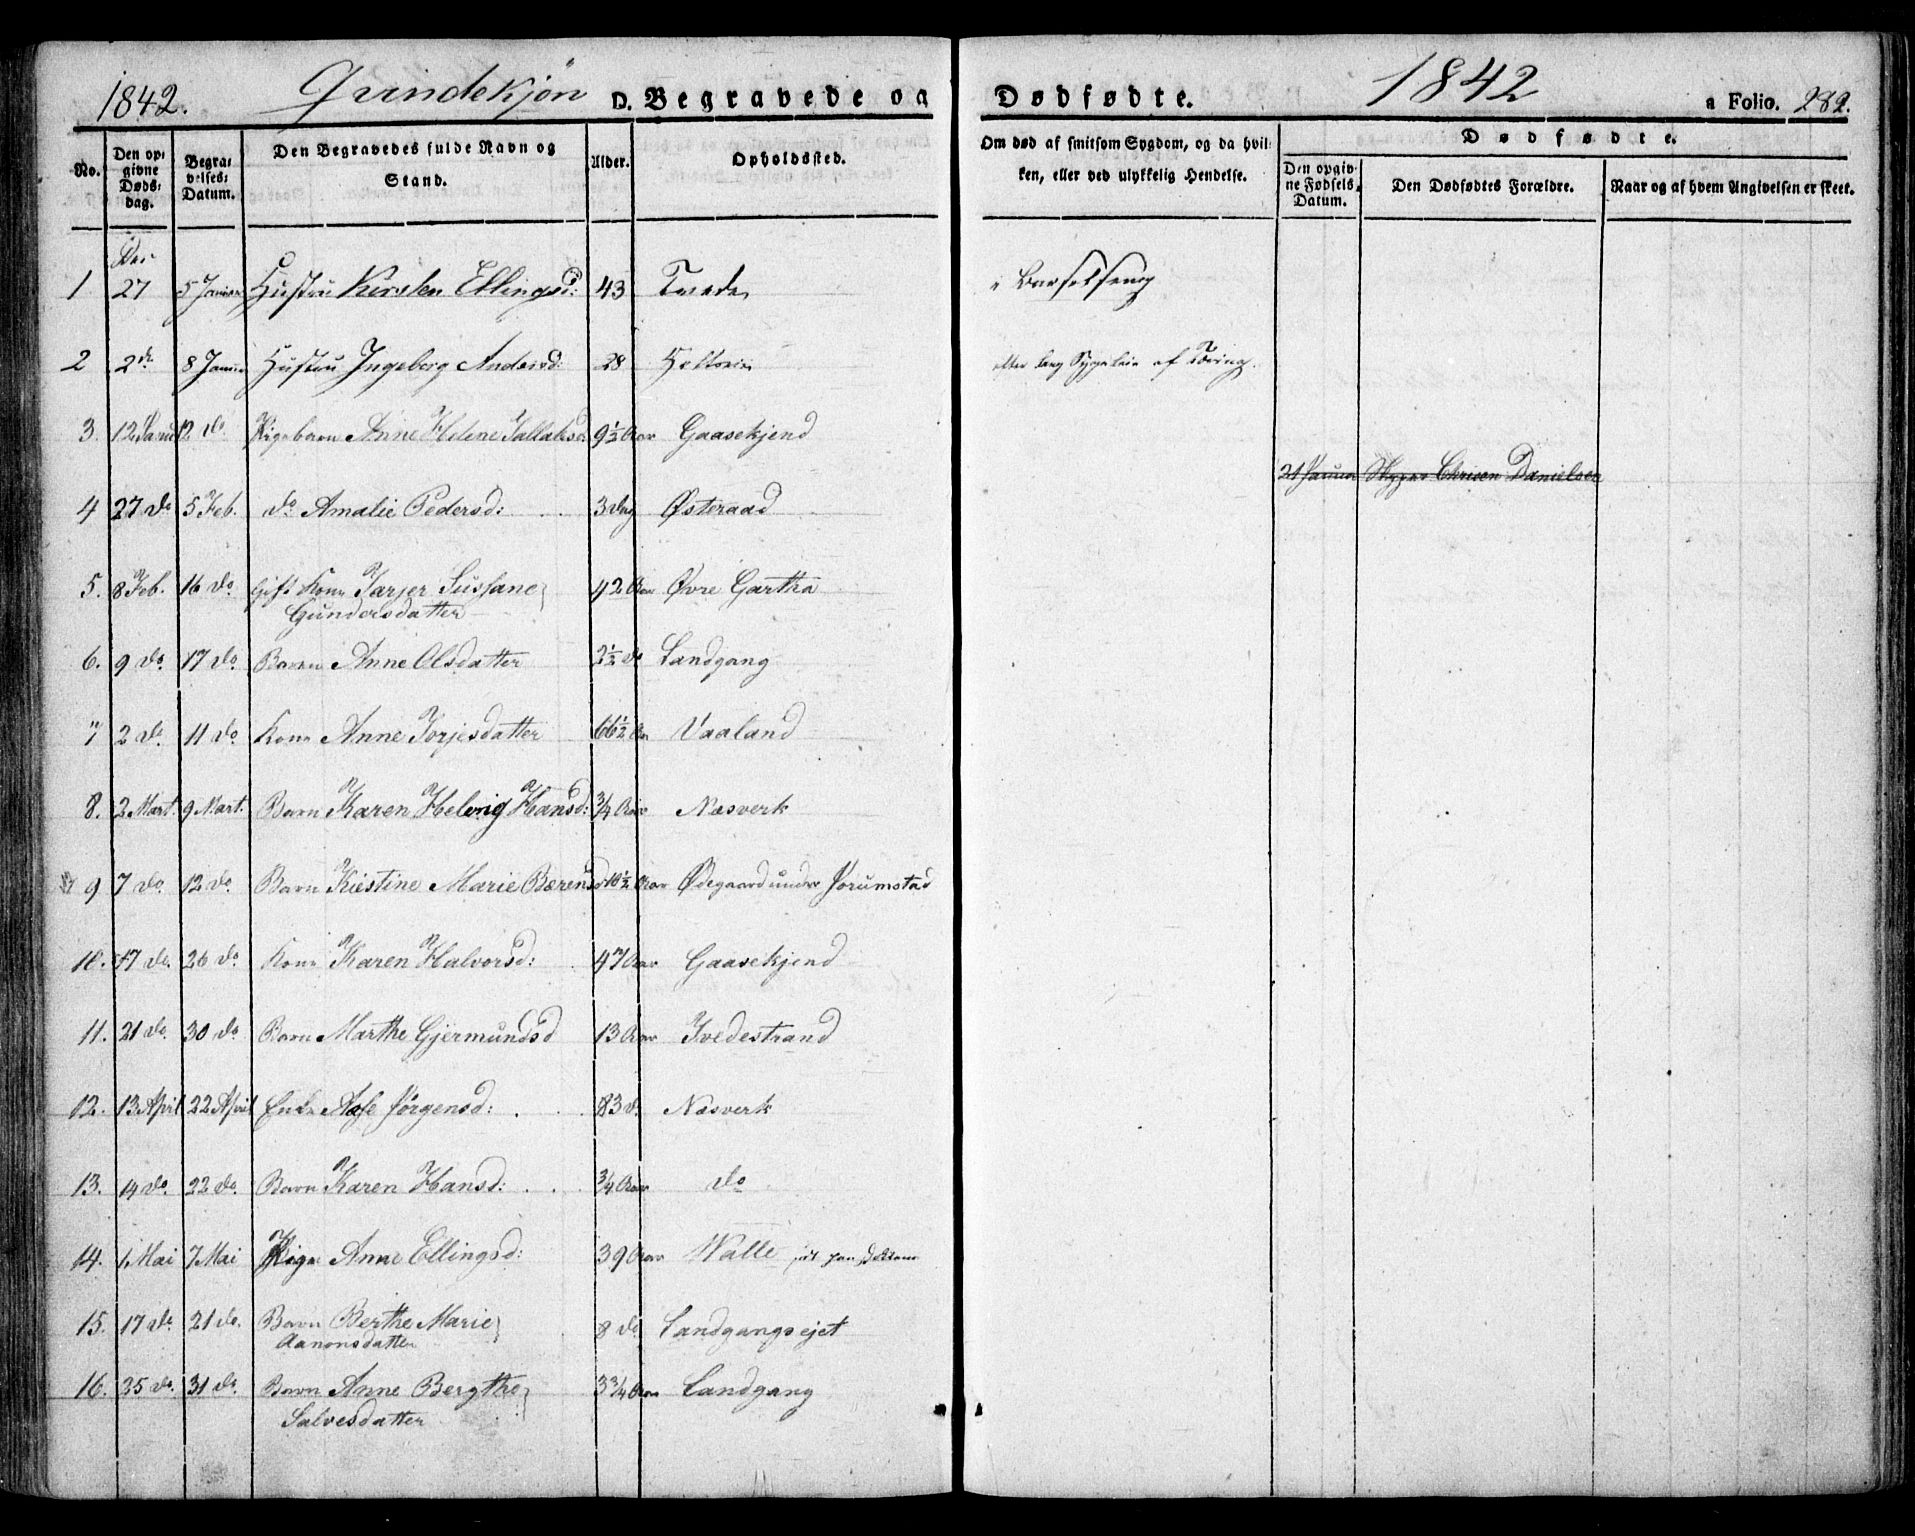 1842. Qvindekjön D. Begravede og Dødfødte. 1842 a Folio. 282.
No. Den opgivne Døds-dag. Begravelses-Datum. Den Begravedes fulde Navn og Stand. Alder. Opholdssted. Om død af smitsom Sygdom, og da hvilken, eller ved ulykkelig Hendelse. Dødfødte. Den opgivne Fødsels Datum. Den Dødfødtes Forældre. Naar og af hvem Angivelsen er skeet.
Dec
1 27 5 Januar Hustru Kirsten Ellingsd: 43 Tvede i Barselseng
2 2 do 8 Januar Hustru Ingeborg Andersd: 28 efter lang Sygeleie af Tæring.
3. 12 Janu 12 do Pigebarn Anne Helene Tallaksd 9½ Aar Gaasekjend
21 Januar Chrisen Danielsen
4 27 do 5 Feb. do Amalie Pedersd: 3 Dag Østeraad
5. 8 Feb. 16 do Gift Kone Tarjer Sussane
Gundersdatter 42 Aar Øvre Gartha
6. 9 do 17 do Barn Anne Olsdatter 2½ do Landgang
7 2 do 11 do Kone Anne Torjesdatter 66½ Aar Vaaland
8. 2 Mart. 9 Mart. Barn Karen Helvig Hansd: ¾ Aar Næsverk
9 7 do 12 do Barn Kiestine Marie Børensd 10½ Aar Ødegaard under Jorumstad
10. 17 do. 26 do Kone Karen Halvorsd: 47 Aar Gaasekjend
11. 21 do. 30 do Barn Marthe Gjermundsd 13 Aar Tvedestrand
12. 13 April 22 April Enke Aase Jörgensd: 83 do Næsverk
13. 14 do. 22 do. Barn Karen Hansd: ¾ Aar do
14. 1 Mai 7 Mai Pige Anne Ellingsd: 39 Aar Walle
15. 17 do. 21 do. Barn Berthe Marie
Aanonsdatter 8 do Landgangsejet
16. 25 do. 31 do. Barn Anne Bergthe
Salvesdatter 3¾ Aar Landgang